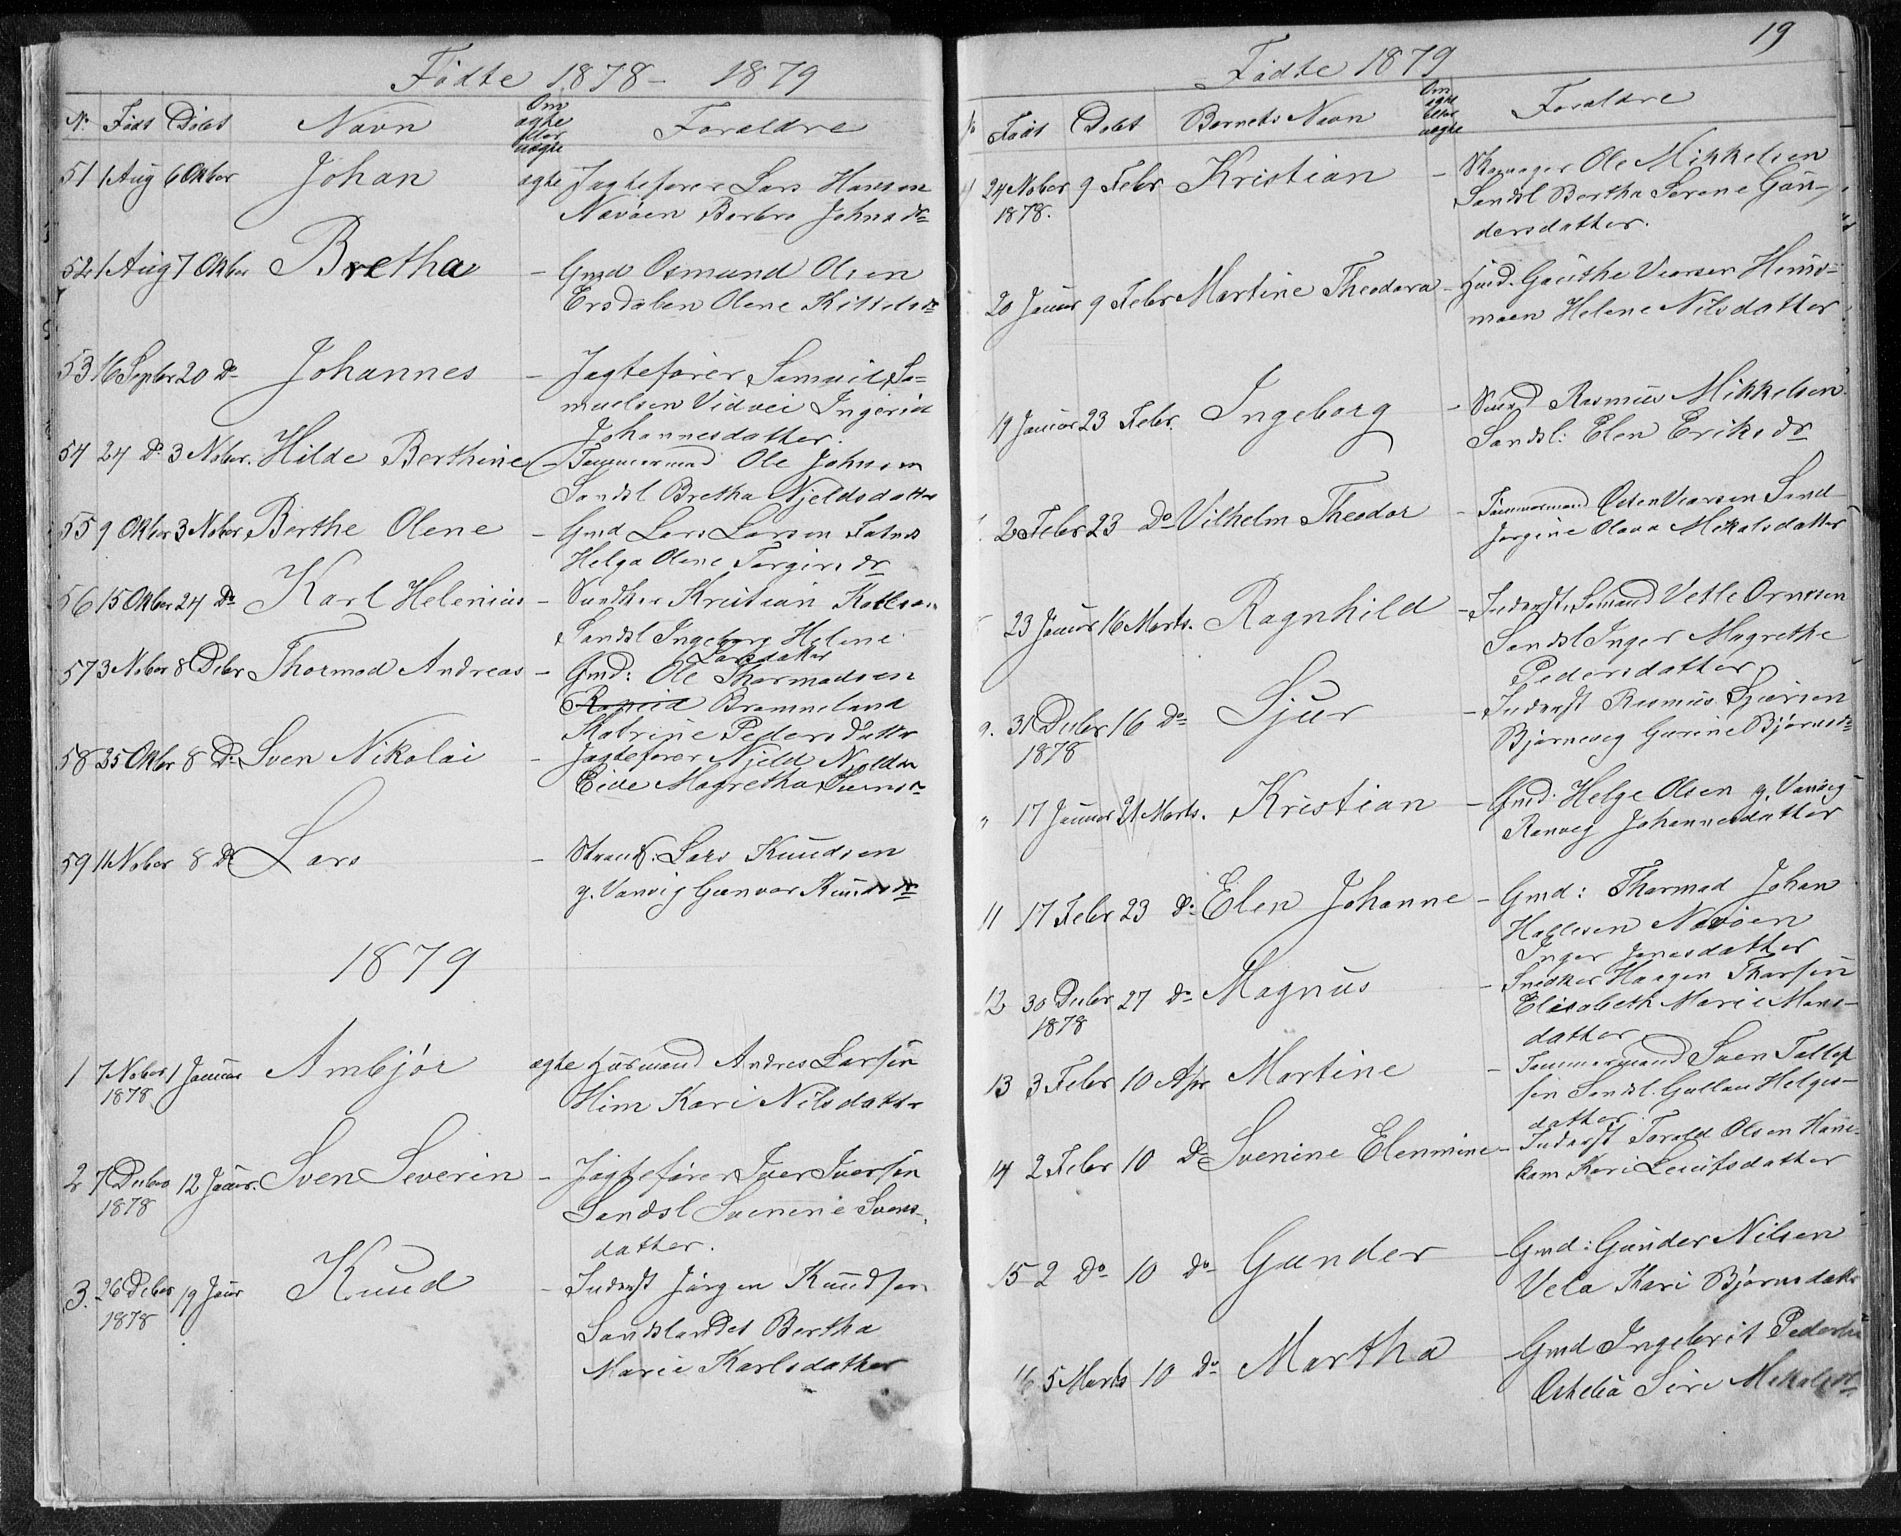 Fødte 1878 - 1879
No Født Døbt Navn Om ægte eller uægte Forældre
51 1 Aug 6 Oktbr Johan ægte Jagtefører Lars Hansen
Nævøen Barbro Johnsdr
52 1 Aug 7 Oktbr Bretha - Gmd Osmund Olsen
Ersdalen Olene Kittelsdr
53 16 Septbr 20 Do Johannes - Jagtefører Samuel Sa=
muelsen Vidvei Ingerid
Johannesdatter.
54 24 Do 3 Nobr. Hilde Berthine - Tømmermand Ole Johnsen
Sandsl Bretha Njeldsdatter
55 9 Oktbr 3 Nobr Berthe Olene - Gmd Lars Larsen Fatnes
Helga Olene Torgirsdr
56 15 Oktbr 24 Do Karl Helenius - Kristian
Sandsl Ingeborg Helene
Larsdatter
57 3 Nobr 8 Debr Thormod Andreas - Gmd: Ole Thormodsen
Brommeland
Katrine Pedersdatter
58 25 Oktbr 8 Do Sven Nikolai - Jagtefører Njeld Njeldsen
Eide Magretha
59 11 Nobr 8 Do Lars - Strands: Lars Knudsen
g. Vanvig Gunvor Knudsdr
1879
1 7 Nobr 1 Januar Ambjør ægte Husmand Andres Larsen
1878
Him Kari Nilsdatter
2 7 Debr 12 Januar. Sven Severin - Jagtefører Iver Iversen
1878
Sandsl Svenine Svens-
datter.
3. 26 Debr 19 Janr Knud - Inderst Jørgen Knudsen
1878
Sandslandet Bertha
Marie Karlsdatter
19
Fødte 1879
No Født Døbt Barnets Navn Om ægte eller uægte Forældre
24 Nobr 9 Febr Kristian - Ole Mikkelsen
1878.
Sandsl Bertha Serene Gun-
dersdatter.
20 Januar 9 Febr Martine Theodora - Husd. Gaüthe Hems=
moen Helene Nilsdatter
19 Januar 23 Febr. Ingeborg - Rasmus Mikkelsen
Sandsl: Elen Eriksdr
2 Febr 23 Do Vilhelm Theodor - Tømmermand Osten Sand
Jørgine Olava Mikalsdatter
23 Januar 16 Marts. Ragnhild - Inderst, Sømand Vetle Ornesen
Sandsl Inger Magrethe
Pedersdatter
9. 31 Debr 16 Do Sjur - Inderst Rasmus Sjursen
1878
Bjørneveg Gurine Bjørnsdr
" 17 Januar 21 Marts. Kristian - Gmd. Helge Olsen y. Vanvig
Ranveg Johannesdatter
11 17 Febr 23 Do Elen Johanne - Gmd: Thormod Johan
Hallesen Nævøen
Inger Jonesdatter
12 30 Debr 27 Do Magnus - Snedker Haagen Thorsen
1878
Elisabeth Marie Mons-
datter
13 3 Febr 10 Apr Martine - Tømmermand Sven Tollef
sen Sandsl. Gullau Helges-
datter.
14 2 Febr 10 Do Svenine Elenmine - Inderst Torald Olsen Hane-
kam Kari Leiufsdatter
15 2 Do 10 Do Gunder - Gmd: Gunder Nilsen
Vela Kari Bjørnsdatter
16 5 Marts 10 Do Martha - Gmd Ingebrit Pedersen
Siri